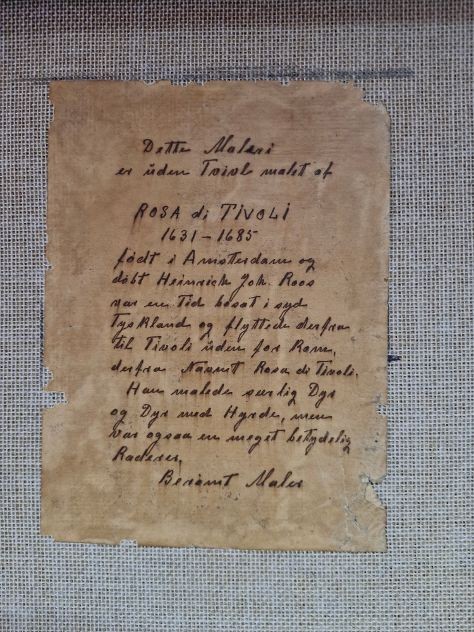 Dette Maleri
er uden Tvivl malet af
ROSA di TIVOLI
1631-1685
født i Amsterdam og
døbt Heinrick Joh. Roos
var en Tid bosat i syd
Tyskland og flyttede derfra
til Tivoli uden for Rom,
derfra Navnet Rosa di Tivoli.
Han malede særlig Dyr
og Dyr med Hyrde, men
var ogsaa en meget betydelig
Raderer,
Berømt Maler